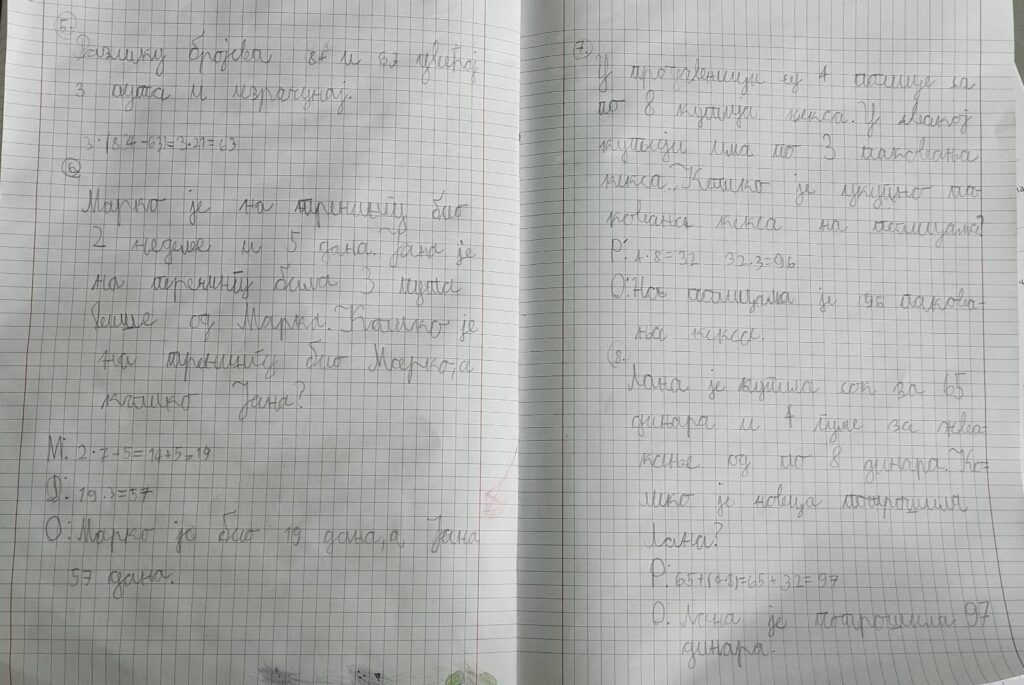 5.
Разлику бројева 84 и 63 увећај
3 пута и израчунај.
3·(84-63)=3·21=63
6.
Марко је на тренингу био
2 недеље и 5 дана. Јана је
на тренингу била 3 пута
више од Марка. Колико је
на тренингу био Марко, а
колико Јана?
М: 2·7+5=14+5=19
19·3=57
О: Марко је био 19 дана, а Јана
57 дана.
7.
У продавници су 4 полице са
по 8 кутија кекса. У свакој
кутији има по 3 паковања
кекса. Колико је укупно па-
ковања кекса на полицама?
Р: 4·8=32 32·3=96
О: На полицама је 96 пакова-
ња кекса.
8.
Лана је купила сок за 65
динара и 4 гуме за жва-
кање од по 8 динара. Ко-
лико је новца потрошила
Лана?
Р: 65+(4·8)=65+32=97
О: Лана је потрошила 97
динара.